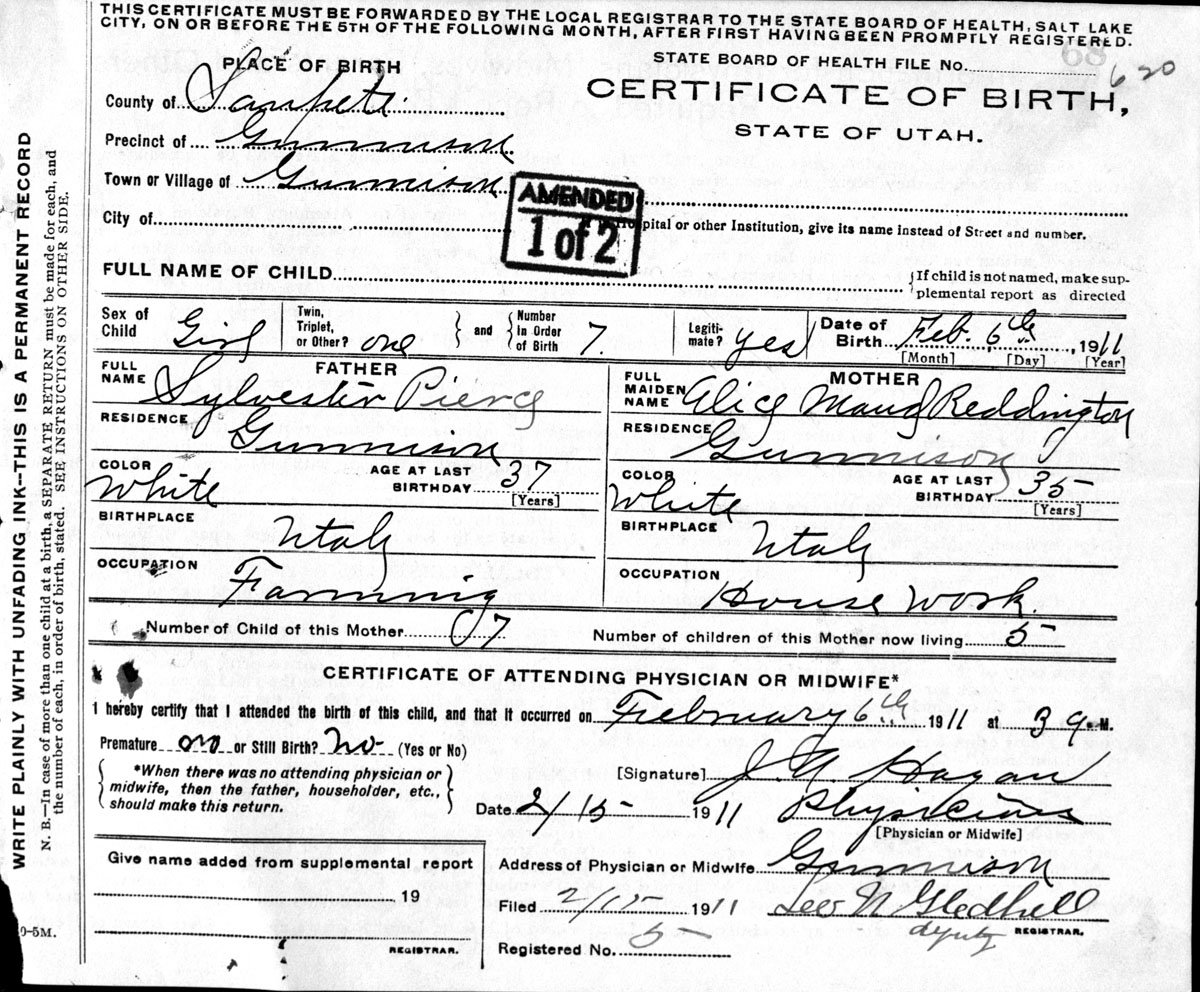 THIS CERTIFICATE MUST BE FORWARDED BY THE LOCAL REGISTRAR TO THE STATE BOARD OF HEALTH, SALT LAKE
CITY, ON OR BEFORE THE 5TH OF THE FOLLOWING MONTH, AFTER FIRST HAVING BEEN PROMPTLY REGISTERED.
68
PLACE OF BIRTH
STATE BOARD OF HEALTH FILE NO. 620
County of Sanpete.
CERTIFICATE OF BIRTH,
STATE OF UTAH.
Precinct of Gunnison.
Town or Village of Gunnison
AMENDED
1 of 2
City of
Hospital or other Institution, give its name instead of Street and number.
FULL NAME OF CHILD
{If child is not named, make sup-
plemental report as directed
Sex of Child Girl
Twin, Triplet, or Other? one } and { Number in Order of Birth 7.
Legiti-mate? yes
Date of Birth Feb. 6th, 1911
[Month] [Day] [Year]
FATHER
FULL NAME Sylvester Pierce
RESIDENCE Gunnison
COLOR White AGE AT LAST BIRTHDAY 37
[Years]
BIRTHPLACE Utah
OCCUPATION Farming
MOTHER
FULL MAIDEN NAME Alice Maud Reddington
RESIDENCE Gunnison
COLOR White AGE AT LAST BIRTHDAY 35
[Years]
BIRTHPLACE Utah
OCCUPATION House Work.
Number of Child of this Mother 07 Number of children of this Mother now living 5
CERTIFICATE OF ATTENDING PHYSICIAN OR MIDWIFE*
I hereby certify that I attended the birth of this child, and that it occurred on February 6th 1911 at 3 a. M.
Premature no or Still Birth? no (Yes or No)
{ *When there was no attending physician or
midwife, then the father, householder, etc.,
should make this return. }
[Signature] J. G. Hagan
Date 2/15 1911 Physician
[Physician or Midwife]
Give name added from supplemental report
19
REGISTRAR.
Address of Physician or Midwife Gunnison
Filed 2/15 1911 Leo N Gledhill
deputy REGISTRAR.
Registered No. 5
0-5M.
WRITE PLAINLY WITH UNFADING INK--THIS IS A PERMANENT RECORD
N. B.—In case of more than one child at a birth, a SEPARATE RETURN must be made for each, and
the number of each, in order of birth, stated. SEE INSTRUCTIONS ON OTHER SIDE.